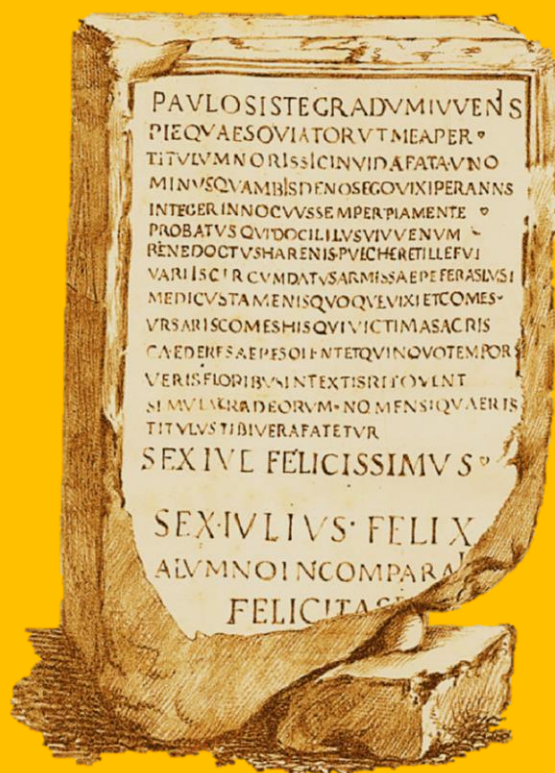 PAVLOSISTEGRADVMIVVENS
PIEQVAESOVIATORVTMEAPER
TITVLVMNORISSICINVIDAFATAVNO
MINVSQVAMBISDENOSEGOVIXIPERANNS
INTEGERINNOCVVSSEMPERPIAMENTE
PROBATVSQVIDOCILILVSVIVVENVM
RENEDOCTVSHARENISPVLCHERETILLEFVI
VARIISCIRCVMDATVSARMISSAEPEFERASLVSI
MEDICVSTAMENISQVOQVEVIXIETCOMES
VRSARISCOMESHISQVIVICTIMASACRIS
CAEDERESAEPESOLENTETQVINOVOTEMPOR
VERISFLORIBVSINTEXTISRITOVENT
SIMVLACRADEORVM·NOMENSIQVAERIS
TITVLVSTIBIVERAFATETVR
SEXIVL FELICISSIMVS
SEX·IVLIVS·FELIX
ALVMNOINCOMPARA
FELICITAS